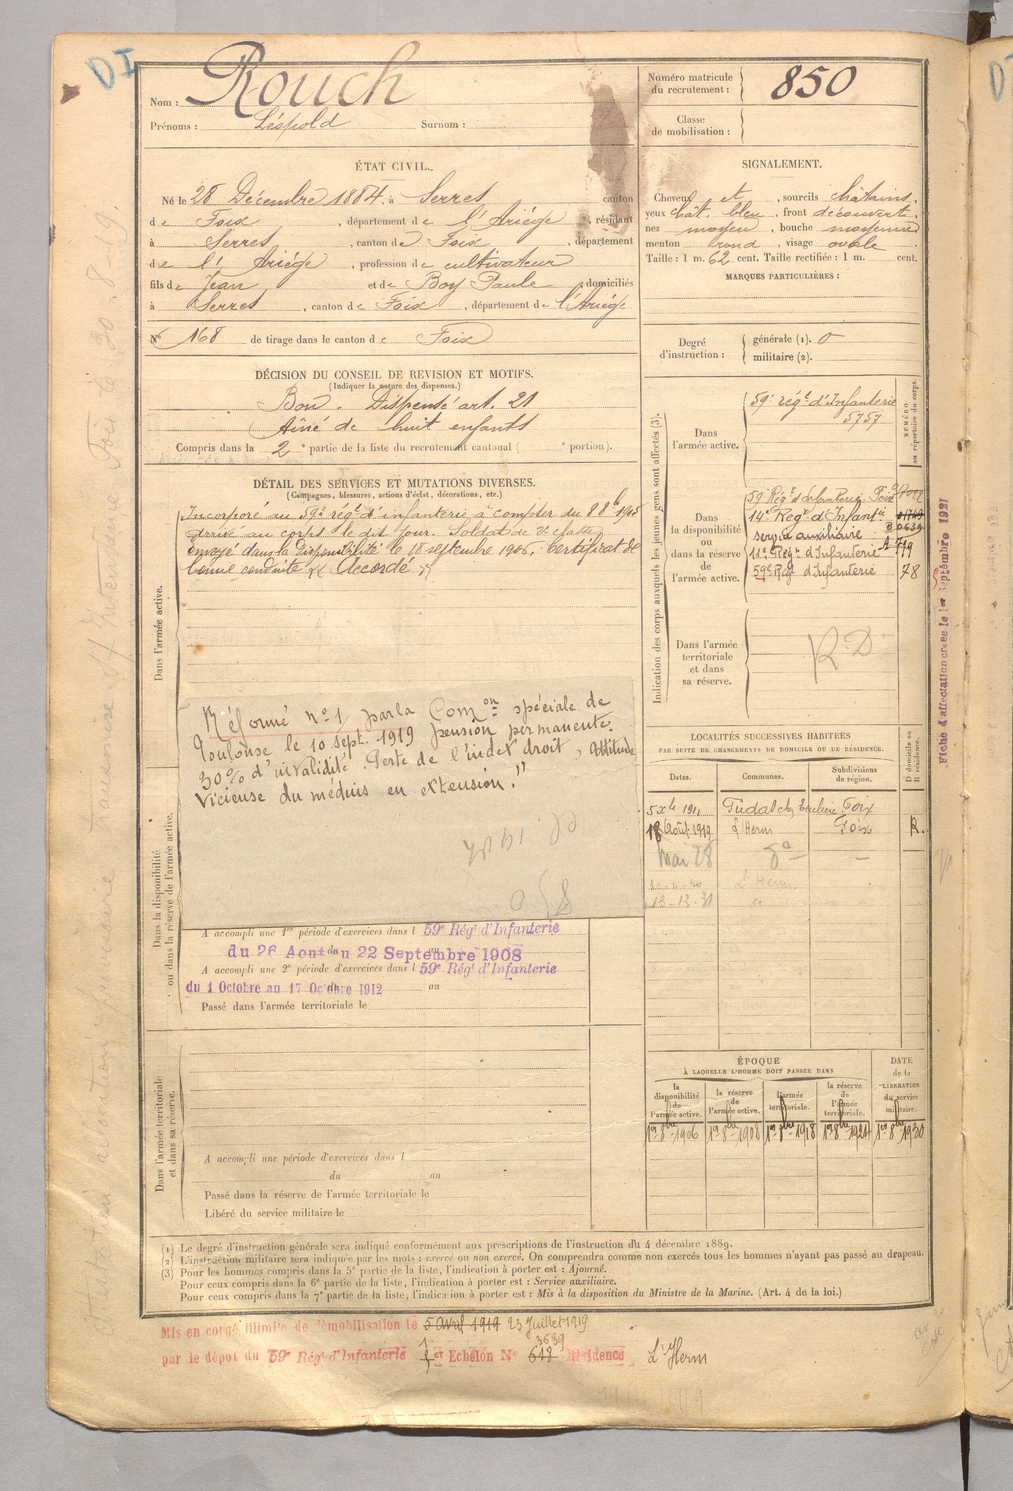 DI
Nom : Rouch
Prénoms : Léopold Surnom :
Numéro matricule du recrutement : 850
Classe de mobilisation :
ÉTAT CIVIL.
Né le 28 Décembre 1884, à Serres, canton
de Foix, département de l'Ariège, résidant
à Serres, canton de Foix, département
de l'Ariège, profession de cultivateur
fils de Jean et de Boy Paule, domiciliés
à Serres, canton de Foix, département de l'Ariège
N° 168 de tirage dans le canton de Foix
SIGNALEMENT.
Cheveux et, sourcils châtains,
yeux chât. bleu, front découvert,
nez moyen, bouche moyenne
menton rond, visage ovale
Taille : 1 m. 62 cent. Taille rectifiée : 1 m. cent.
MARQUES PARTICULIÈRES :
Degré d'instruction : générale (1). 0
militaire (2).
DÉCISION DU CONSEIL DE REVISION ET MOTIFS.
(Indiquer la nature des dispenses.)
Bon. Dispensé art. 21
Aîné de huit enfants
Compris dans la 2e partie de la liste du recrutement cantonal ( e portion).
DÉTAIL DES SERVICES ET MUTATIONS DIVERSES.
(Campagnes, blessures, actions d'éclat, décorations, etc.)
Dans l'armée active.
Incorporé au 59e régt d'infanterie à compter du 8 8bre 1905
arrivé au corps le dit jour. Soldat de 2e classe
Envoyé dans la Disponibilité le 18 septembre 1906. Certificat de
bonne conduite "Accordé"
Réformé n° 1 par la Comon spéciale de
Toulouse le 10 sept. 1919 pension permanente.
30% d'invalidité. Perte de l'index droit, Attitude
vicieuse du médius en extension."
850
Dans la disponibilité ou dans la réserve de l'armée active.
A accompli une 1re période d'exercices dans l 59e Régt d'Infanterie
du 26 Aout au 22 Septembre 1908
A accompli une 2e période d'exercices dans l 59e Régt d'Infanterie
du 1 Octobre au 17 Octobre 1912
Passé dans l'armée territoriale le
Dans l'armée territoriale et dans sa réserve.
A accompli une période d'exercices dans l
du au
Passé dans la réserve de l'armée territoriale le
Libéré du service militaire le
Indication des corps auxquels les jeunes gens sont affectés (3).
NUMÉRO au répertoire du corps.
Dans l'armée active.
59e régt d'Infanterie
5757
Dans la disponibilité ou dans la réserve de l'armée active.
59 Régt d'Infanterie Foix
14e Régt d'Infantie
service auxiliaire
11e Régt d'Infanterie A 719
59e Régt d'Infanterie 78
Dans l'armée territoriale et dans sa réserve.
R D
Fiche d'affectation créée le 1er Septembre 1921
LOCALITÉS SUCCESSIVES HABITÉES
PAR SUITE DE CHANGEMENTS DE DOMICILE OU DE RÉSIDENCE.
Dates. Communes. Subdivisions de région. D domicile ou R résidence.
1911 Foix
18 Août 1919 L'Herm Foix R.
Mai 28 do —
L'Herm
13-12-31
ÉPOQUE
À LAQUELLE L'HOMME DOIT PASSER DANS
la disponibilité de l'armée active. la réserve de l'armée active. l'armée territoriale. la réserve de l'armée territoriale. DATE de la LIBÉRATION du service militaire.
1er 8bre 1906 1er 8bre 1908 1er 8bre 1918 1er 8bre 1924 1er 8bre 1930
(1) Le degré d'instruction générale sera indiqué conformément aux prescriptions de l'instruction du 4 décembre 1889.
(2) L'instruction militaire sera indiquée par les mots : exercé ou non exercé. On comprendra comme non exercés tous les hommes n'ayant pas passé au drapeau.
(3) Pour les hommes compris dans la 5e partie de la liste, l'indication à porter est : Ajourné.
Pour ceux compris dans la 6e partie de la liste, l'indication à porter est : Service auxiliaire.
Pour ceux compris dans la 7e partie de la liste, l'indication à porter est : Mis à la disposition du Ministre de la Marine. (Art. 4 de la loi.)
Mis en congé illimité de démobilisation le 5 avril 1919 23 Juillet 1919
par le dépot du 59e Régt d'Infanterie Echelon N° 648 3639 Résidence L'Herm